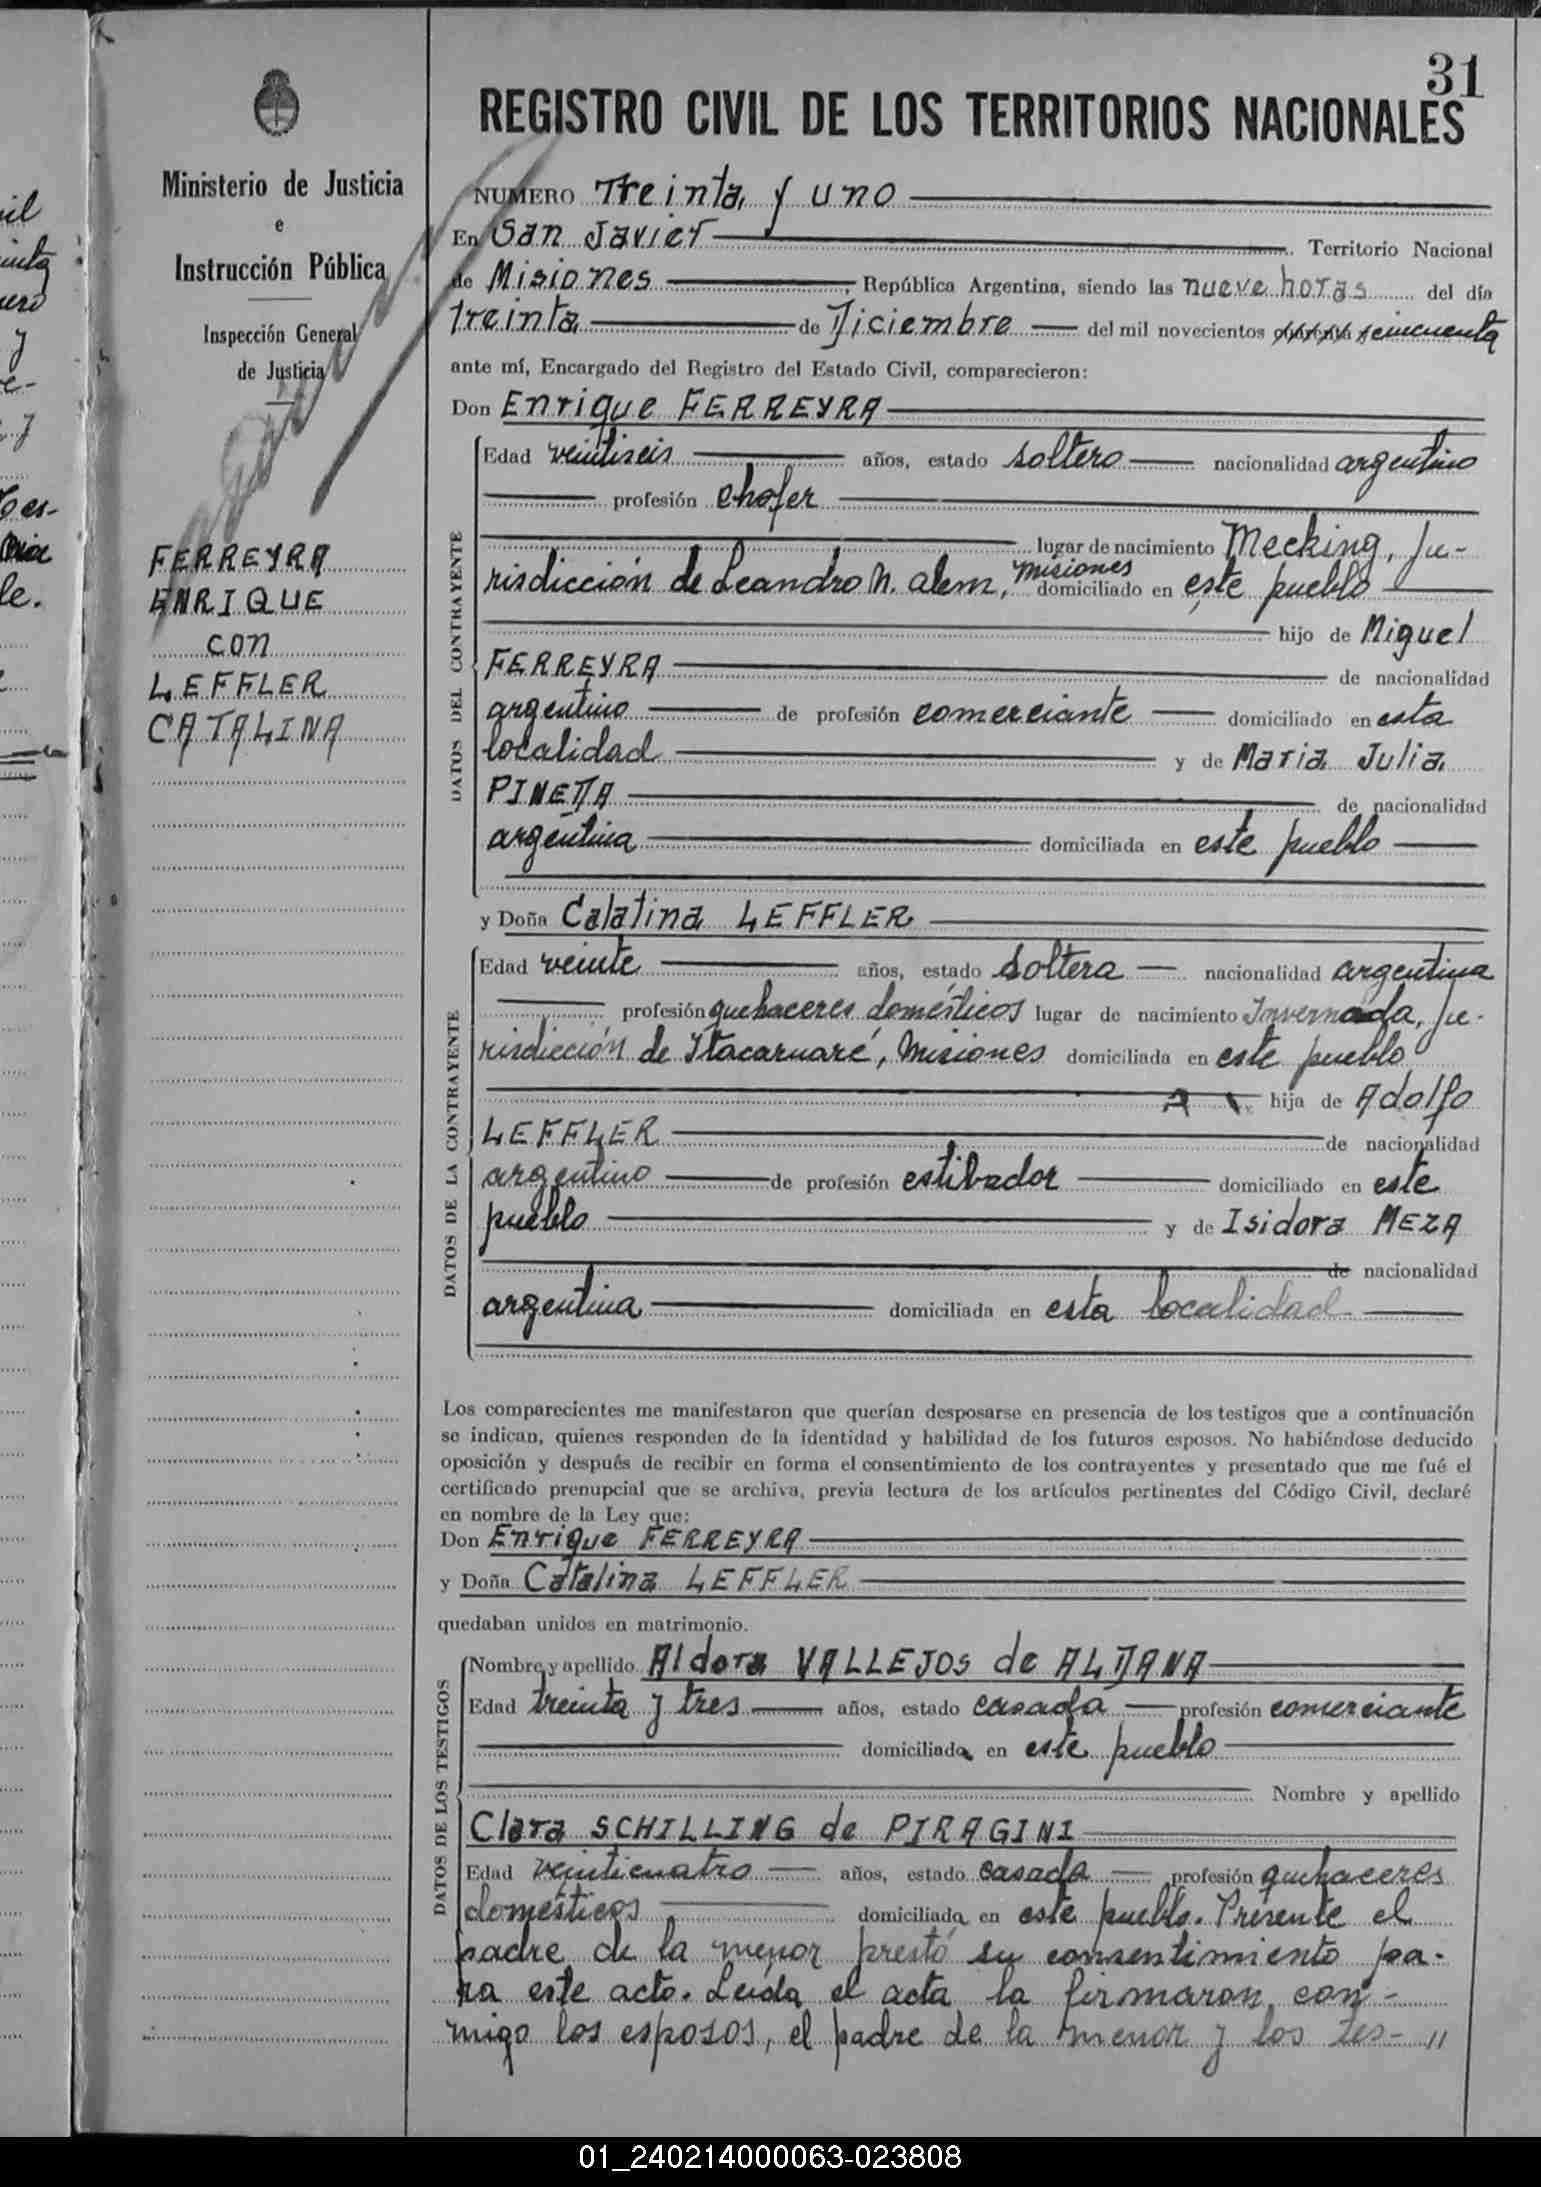 31
REGISTRO CIVIL DE LOS TERRITORIOS NACIONALES
Ministerio de Justicia
e
Instrucción Pública
Inspección General
de Justicia
FERREYRA
ENRIQUE
con
LEFFLER
CATALINA
NUMERO Treinta y uno
En San Javier Territorio Nacional
de Misiones, República Argentina, siendo las nueve horas del día
treinta de Diciembre del mil novecientos cincuenta
ante mí, Encargado del Registro del Estado Civil, comparecieron:
Don Enrique FERREYRA
DATOS DEL CONTRAYENTE
Edad veintiseis años, estado soltero nacionalidad argentino
profesión chofer
lugar de nacimiento Mecking, ju-
risdicción de Leandro N. Alem, Misiones domiciliado en este pueblo
hijo de Miguel
FERREYRA de nacionalidad
argentino de profesión comerciante domiciliado en esta
localidad y de Maria Julia
PINETTA de nacionalidad
argentina domiciliada en este pueblo
y Doña Calatina LEFFLER
DATOS DE LA CONTRAYENTE
Edad veinte años, estado soltera nacionalidad argentina
profesión quehaceres domésticos lugar de nacimiento Invernada, ju-
risdicción de Itacaruaré, Misiones domiciliada en este pueblo
hija de Adolfo
LEFFLER de nacionalidad
argentino de profesión estibador domiciliado en este
pueblo y de Isidora MEZA
de nacionalidad
argentina domiciliada en esta localidad
Los comparecientes me manifestaron que querían desposarse en presencia de los testigos que a continuación
se indican, quienes responden de la identidad y habilidad de los futuros esposos. No habiéndose deducido
oposición y después de recibir en forma el consentimiento de los contrayentes y presentado que me fué el
certificado prenupcial que se archiva, previa lectura de los artículos pertinentes del Código Civil, declaré
en nombre de la Ley que:
Don Enrique FERREYRA
y Doña Catalina LEFFLER
quedaban unidos en matrimonio.
DATOS DE LOS TESTIGOS
Nombre y apellido Aldora VALLEJOS de ALDANA
Edad treinta y tres años, estado casada profesión comerciante
domiciliada en este pueblo
Nombre y apellido
Clara SCHILLING de PIRAGINI
Edad veinticuatro años, estado casada profesión quehaceres
domésticos domiciliada en este pueblo. Presente el
padre de la menor prestó su consentimiento pa-
ra este acto. Leída el acta la firmaron con-
migo los esposos, el padre de la menor y los tes- "
01_240214000063-023808